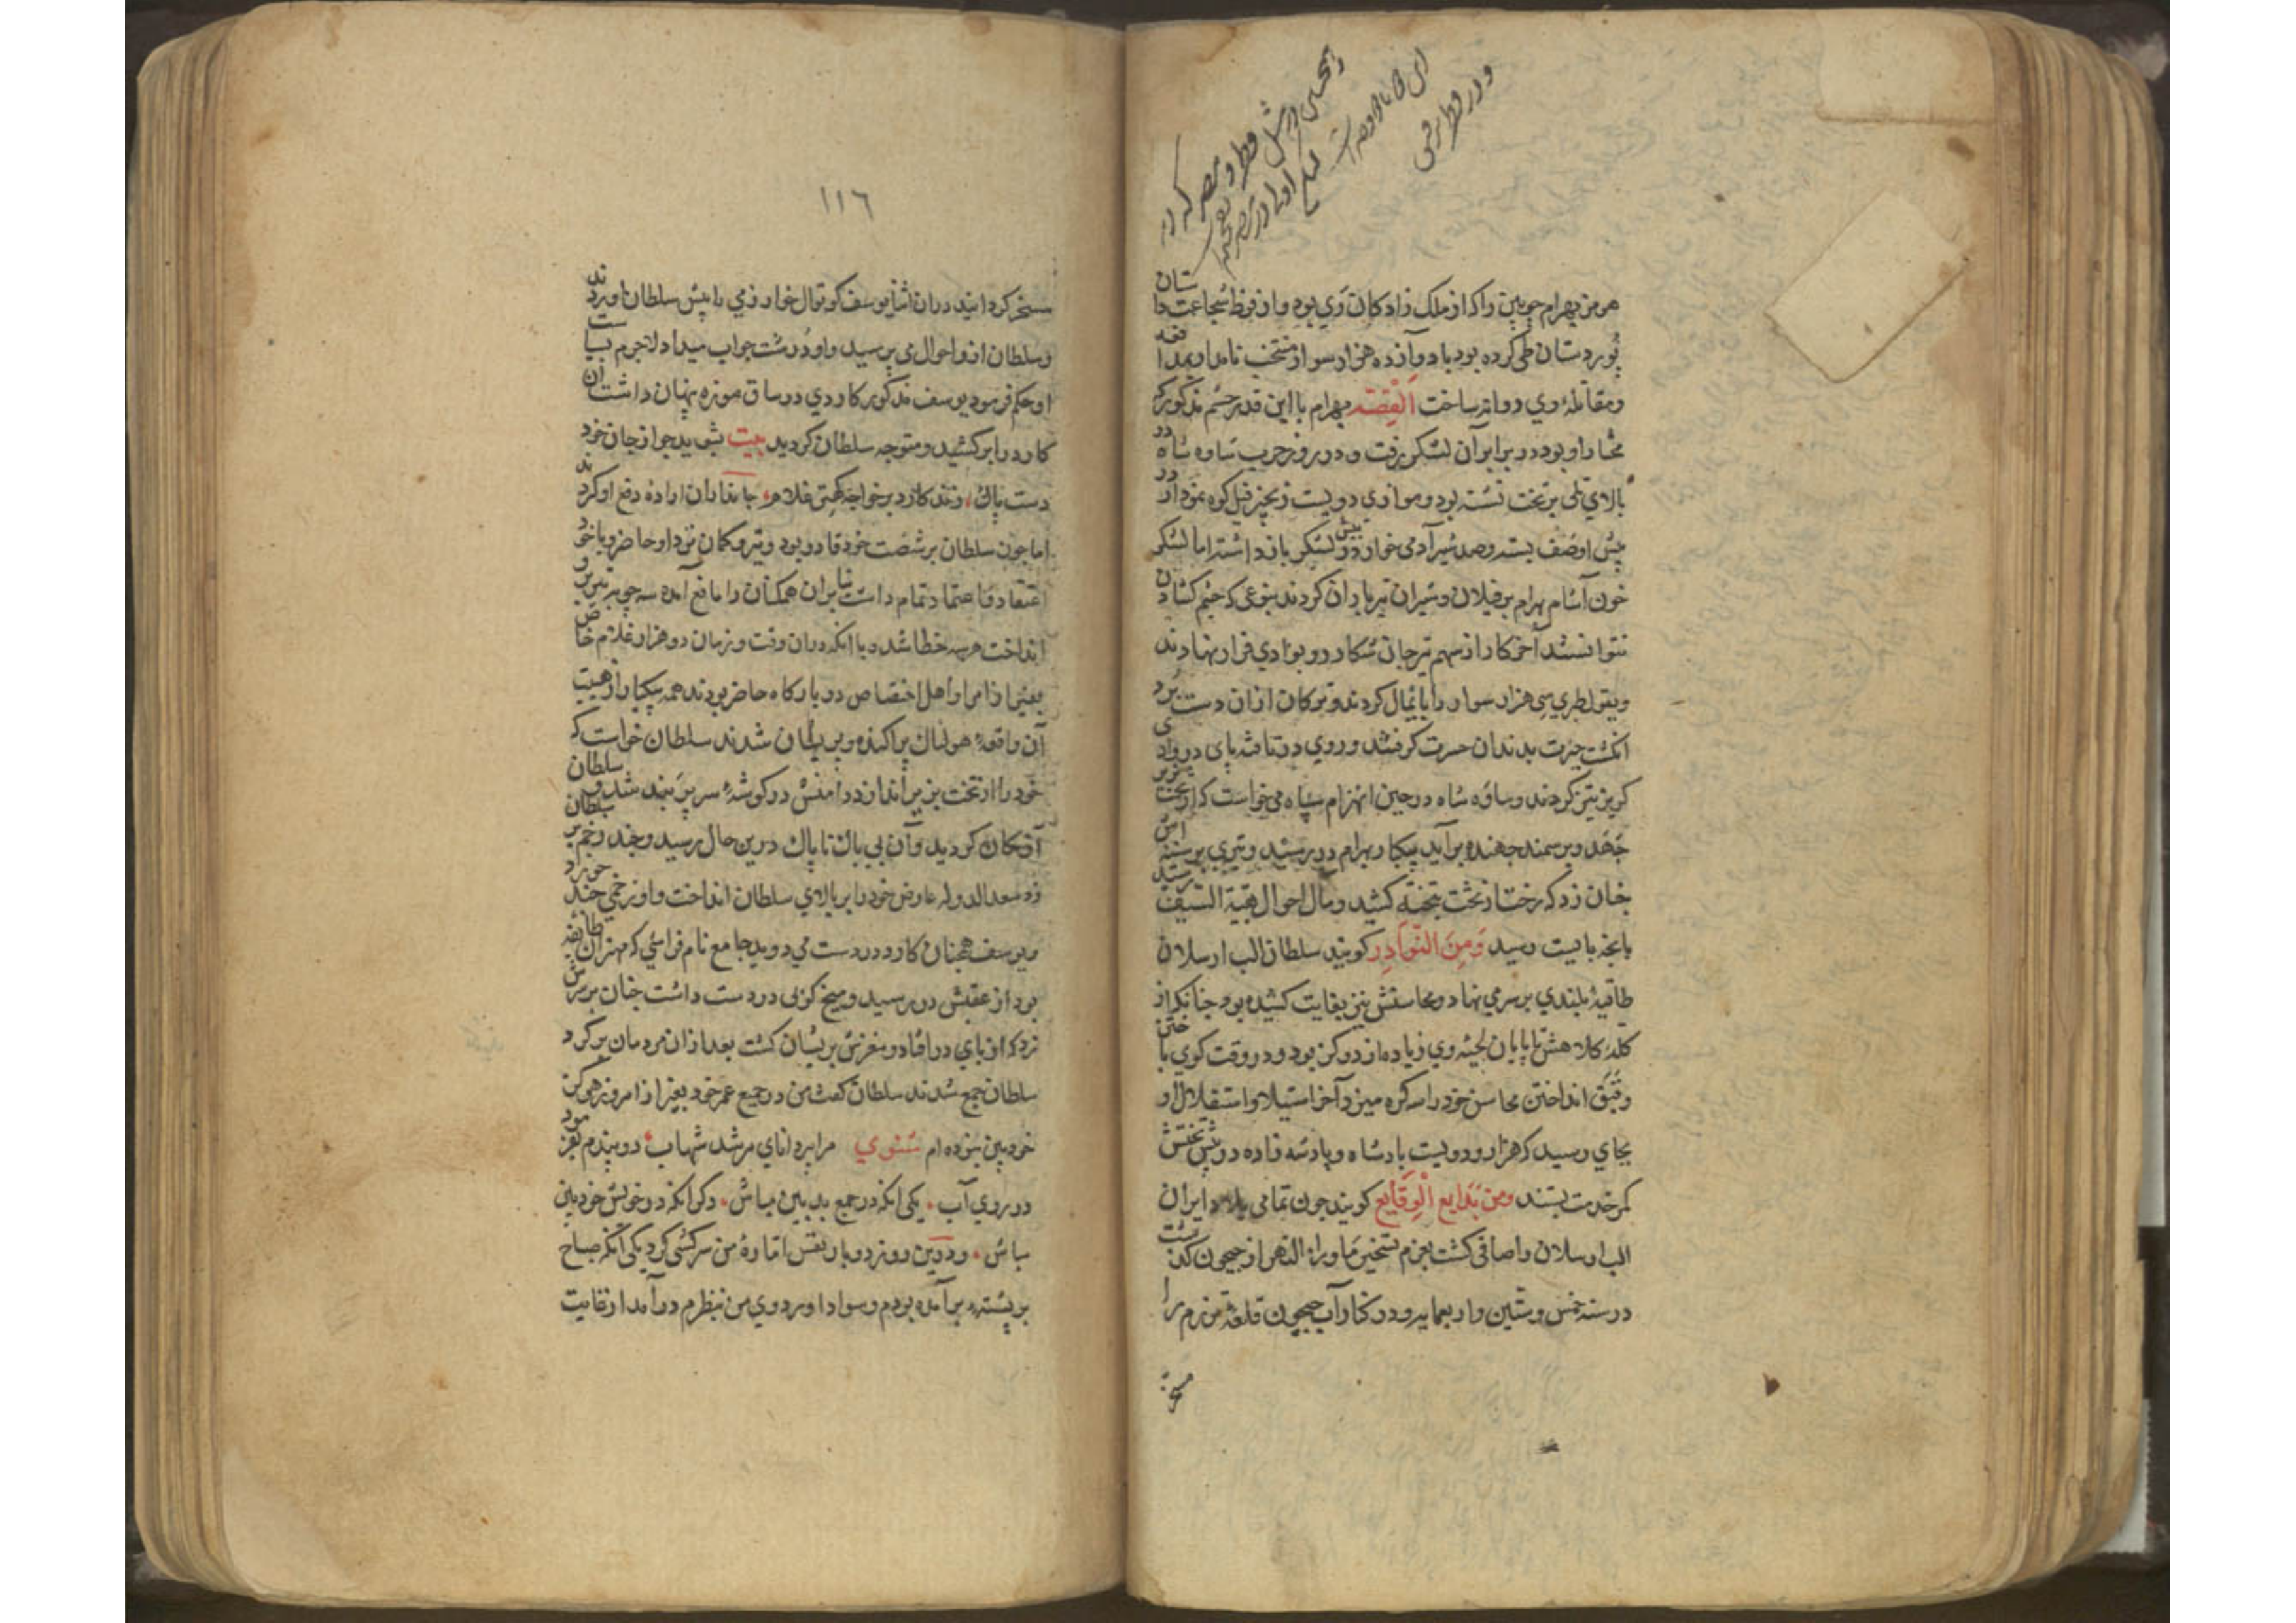 هرمز بهرام چوبین را که از ملک زادکان ری بود و از فرط شجاعت داستان
پور دستان طی کرده بود با دوازده هزار سوار منتخب نامدار بمدافعه
ومقابلهٔ وی روانه ساخت اَلْقِصّه بهرام با این قدر حشم مذکور که
مختار او بود در برابر آن لشکر برفت و در روز حرب ساوه شاه در
بالای تلی بر تخت نشسته بود و موازی دویست زنجیر فیل کوه نمودار در
پیش او صف بسته وصد شیر آدمی خوار در پیش لشکر بازداشته اما لشکر
خون آشام بهرام بر فیلان وشیران تیر باران کردند بنوعی که چشم کشادن
نتوانستند آخر کار از سهم تیر جان شکار رو بوادی فرار نهادند
وبقول طبری سی هزار سوار را پایمال کردند و ترکان ازان دست برد
انکشت حیرت بدندان حسرت کرفتند و روی در تافته پای در وادی
کریز تیز کردند وساوه شاه در حین انهزام سپاه می خواست که از تخت بزیر
جهد وبر سمند جهنده برآید بیکبار بهرام در رسید وتیری بر سینه اش
چنان زد که رختش از تخت بتخته کشید ومآل احوال بقیة السیف رسید
بانچه بایست رسید وَمِنَ النَّوَادِر کویند سلطان الب ارسلان
طاقیهٔ بلندی بر سر می نهاد و محاسنش نیز بغایت کشیده بود چنانکه از
کلهٔ کلاهش تا پایان لحیه وی زیاده از دو کز بود و در وقت کوی باختن
وقبق انداختن محاسن خود را سه کره میزد آخر استیلا و استقلال او
بجای رسید که هزار و دویست پادشاه و پادشه زاده در پیش تختش
کمر خدمت بستند ومن بَدایع الْوقَایع کویند چون تمامی بلاد ایران
الب ارسلان را صافی کشت بعزم تسخیر ماوراء النهر از جیحون بکذشت
در سنه خمس وستین واربعمایه و در کنار آب جیحون قلعهٔ برزم را
مسخر
١١٦
مسخر کردانیدند در آن اثنا یوسف کوتوال خوارزمی را پیش سلطان آوردند
وسلطان از و احوال می پرسید و او درشت جواب میداد لاجرم بسیاست
او حکم فرمود یوسف مذکور کاردی در ساق موزه پنهان داشت آن
کارد را بر کشید و متوجه سلطان کردید بیت بشوید چو از جان خود
دست پاک، زند کارد بر خواجه کمتر غلام، جانداران ارادهٔ دفع او کردند
اما چون سلطان بر شصت خود قادر بود و تیر و کمان نزد او حاضر و با خود
اعتقاد و اعتماد تمام داشت بنابران همکنان را مانع آمده سه چوبه تیر برو
انداخت هر سه خطا شد و با انکه دران وقت و زمان دو هزار غلام خاص
بغیر از امرا و اهل اختصاص در بارکاه حاضر بودند همه بیکبار از هیبت
آن واقعهٔ هولناک پراکنده و پریشان شدند سلطان خواست که
خود را از تخت بزیر اندازد دامنش در کوشهٔ سریر بند شد و سلطان
آویخته کردید و آن بی باک ناپاک درین حال رسید و چند زخم بر سلطان
زد سعد الدوله عارض خود را بر بالای سلطان انداخت و او زخمی چند خورد
ویوسف همچنان کارد در دست می دوید جامع نام فراشی که مهتر آن طایفه
بود از عقبش در رسید و میخ کوبی در دست داشت چنان بر سرش
زد که از پای در افتاد و مغزش پریشان کشت بعد ازان مردمان بر کرد
سلطان جمع شدند سلطان کفت من در جمیع عمر خود بغیر از امروز هرکز
خود بین نبوده ام مثنوی مرا پیر دانای مرشد شهاب، دو پندم بفرمود
در روی آب، یکی انکه در جمع بدبین مباش، دکر انکه در خویش خودبین
مباش، و درین روز دو بار نفس امّارهٔ من سرکشی کرد یکی آنکه صباح
بر پشته برآمده بودم و سواد اردوی من بنظرم درآمد از غایت